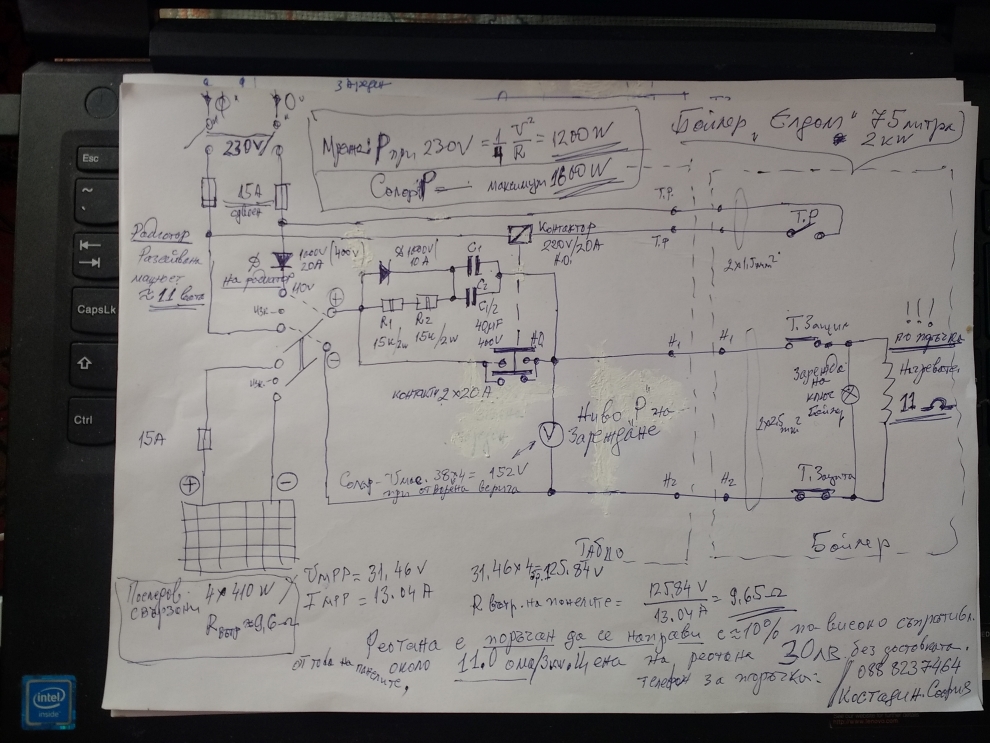 Esc
CapsLk
Ctrl
intel
inside
"Ф"
"0"
230V
15A
Мрежа: P при 230V = 1/4 V²/R = 1200W
Солар: P = максимум 1600W
Бойлер "Елдом" 75 литра
2kw
Т.Р.
Т.Р.
Т.Р
2x1,5mm²
Контактор
220V/20A
Н.О.
Радиатор
Разсейвана
мощност
≈ 11 вата
1000V (400V)
20A
на радиатор
110V
изк.
изк.
1000V
10A
C1
C2
C1/2
40µF
400V
R1
R2
15k/2w
15k/2w
Н.О.
контакти 2x20A
Н1
Н1
Т. Защит
!!!
по поръчка
Нагревател
11 Ω
Зарежда
на
ключ
Бойлер
2x2,5
mm²
15A
Ниво "P" на
Зареждане
V
Солар - Vмах. 38x4 = 152V
при отворена верига
Н2
Н2
Т. Защита
Табло
Бойлер
Последов.
свързани
4x410W
Rвътр ≈ 9,6Ω
VMPP = 31,46V
IMPP = 13.04A
31,46x4бр. = 125.84V
R вътр. на панелите = 125,84V / 13.04A = 9,65Ω
Реотана е поръчан да се направи с ≈10% по високо съпротивл.
от това на панелите, около 11.0 ома/3kw. Цена на реотана 30лв. без доставката.
Телефон за поръчки: 088 8237464
Костадин. София